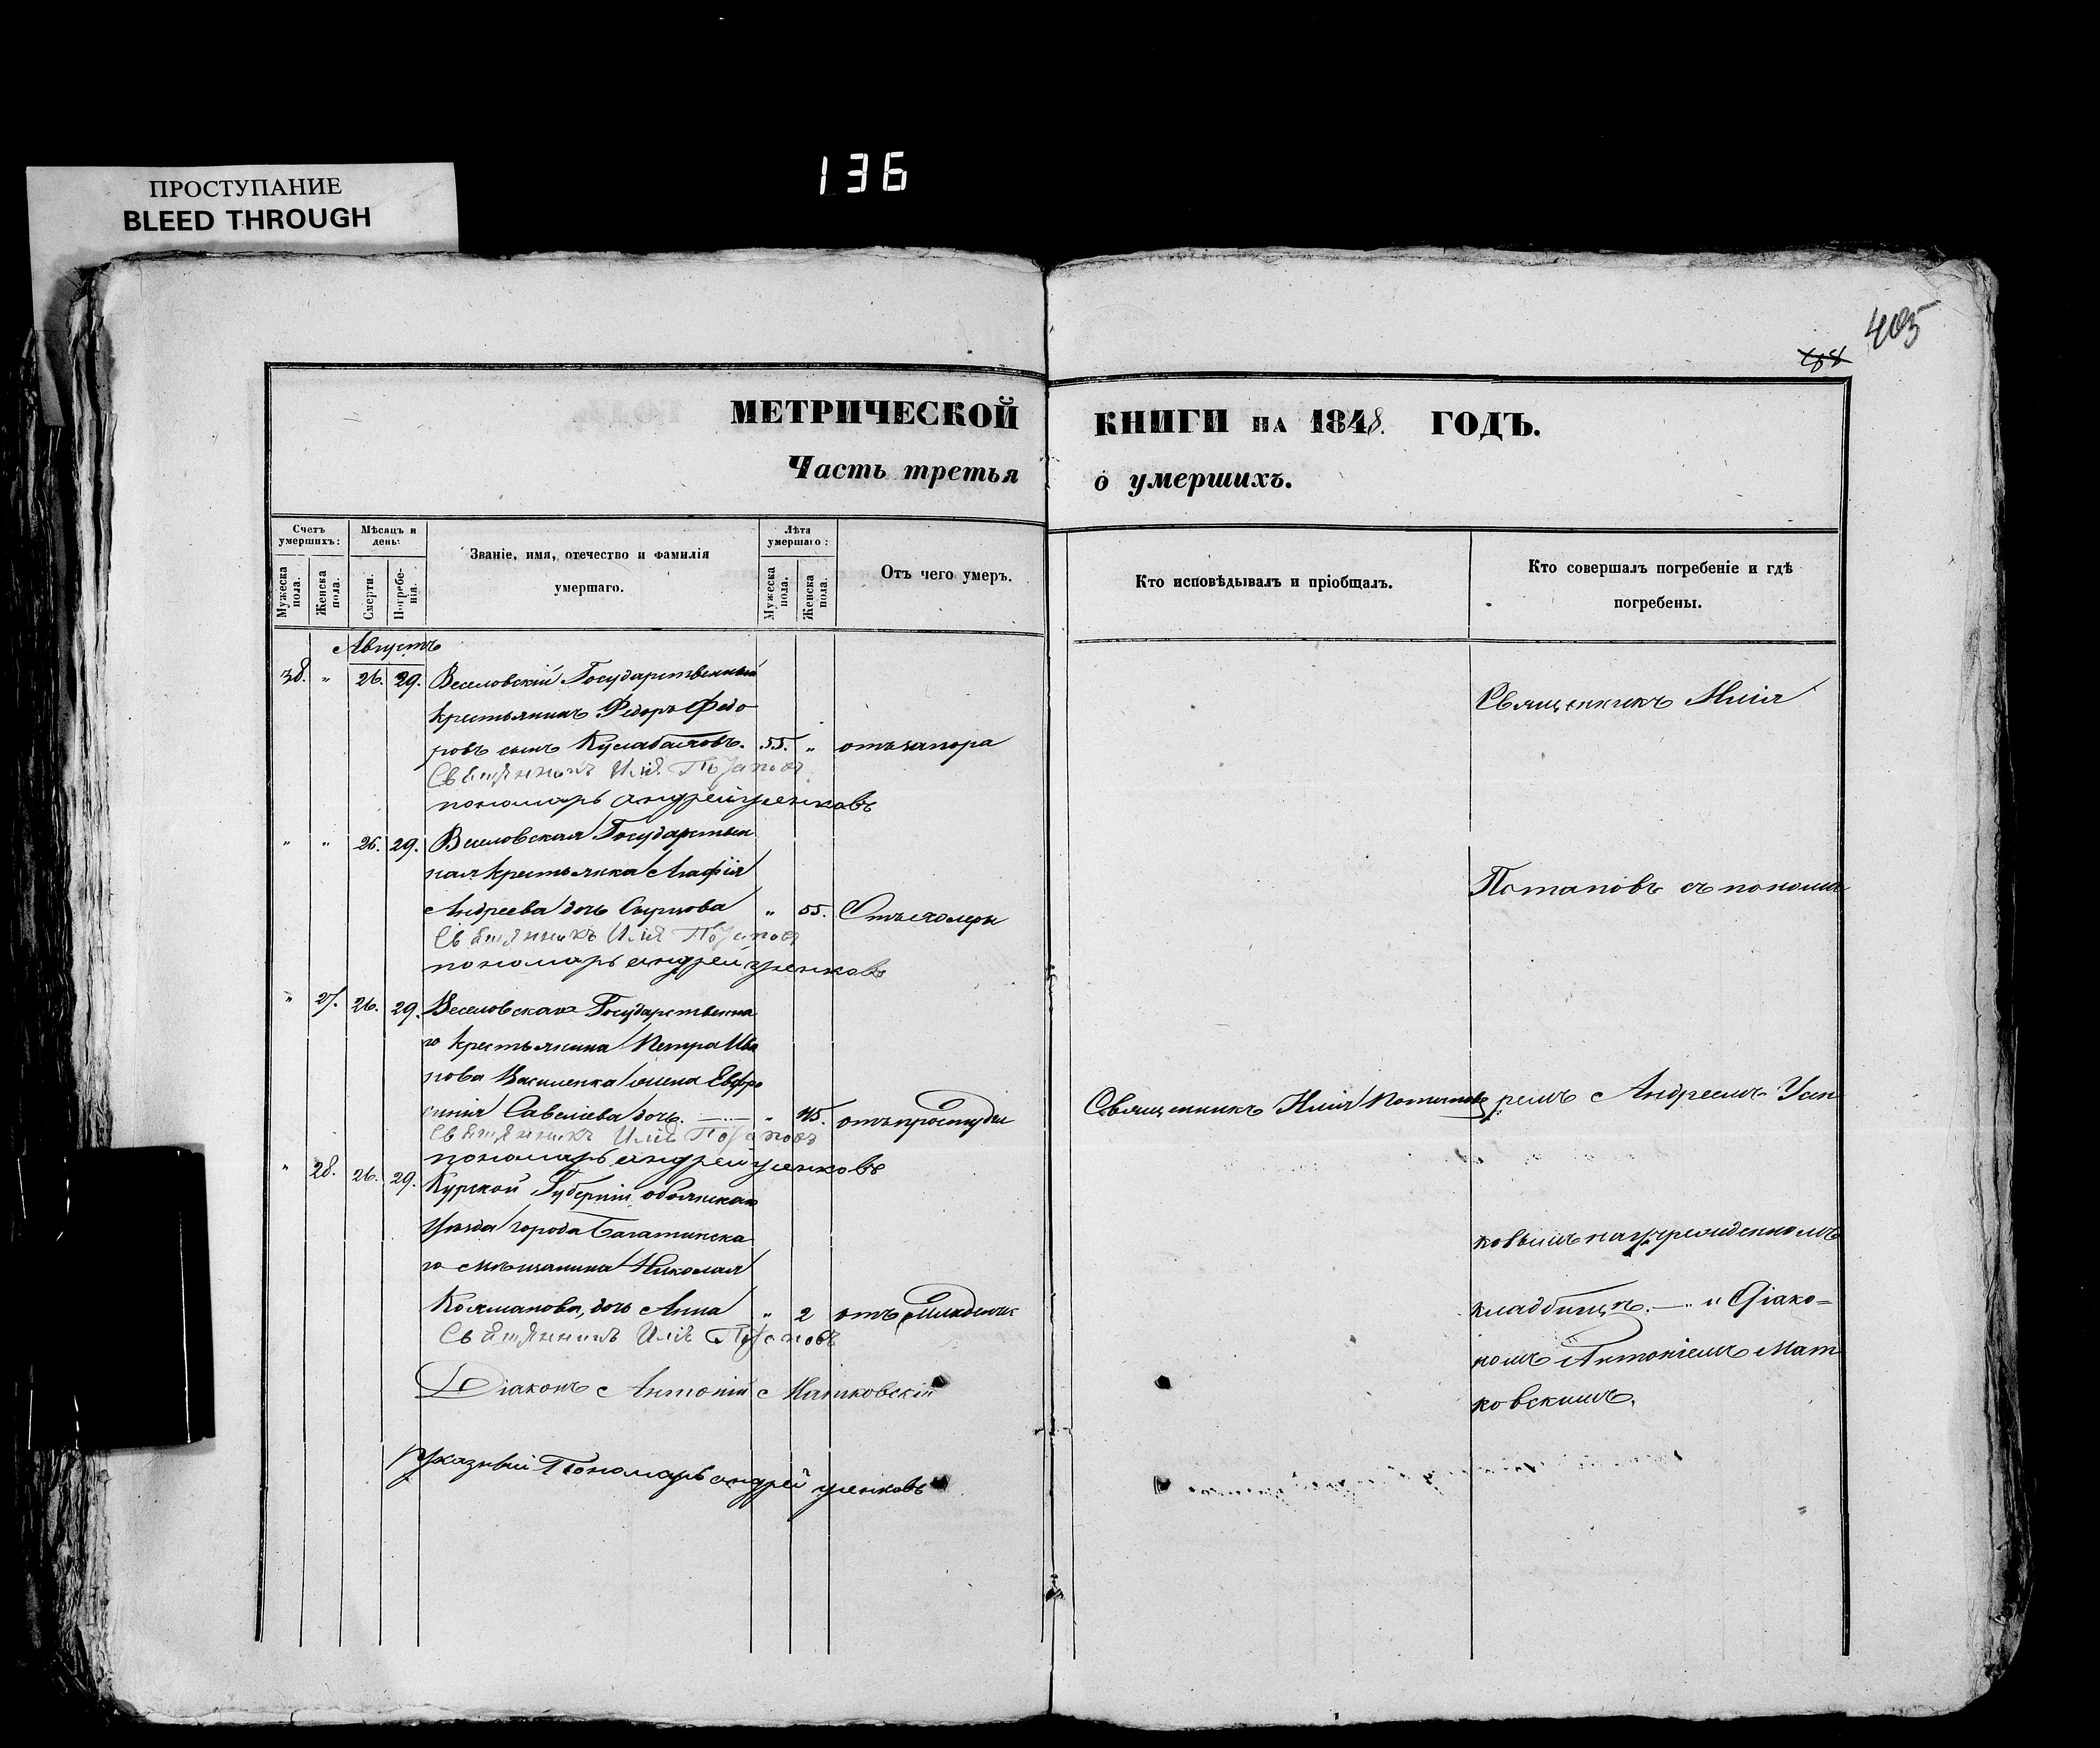 136
ПРОСТУПАНИЕ
BLEED THROUGH
405
МЕТРИЧЕСКОЙ КНИГИ НА 1848. ГОДЪ.
Часть третья о умершихъ.
Счетъ умершихъ:
Мужеска пола.
Женска пола.
Мѣсяцъ и день:
Смерти.
Погребенія.
Званіе, имя, отечество и фамилія
умершаго.
Лѣта умершаго:
Мужеска пола.
Женска пола.
Отъ чего умеръ.
Кто исповѣдывалъ и пріобщалъ.
Кто совершалъ погребеніе и гдѣ
погребены.
Августъ
38. " 26. 29. Веселовскій Государственный
крестьянинъ Федоръ Федо
ровъ сынъ 55. " отъ запора
Священникъ Илія Потаповъ
пономарь андрей усенковъ
" " 26. 29. Веселовская Государствен
ная крестьянка Агафія
Андреева дочь " 55. Отъ холеры
Священникъ Илія Потаповъ
пономарь андрей усенковъ
" 27. 26. 29. Веселовскаго Государственна
го крестьянина Петра Ива
нова Василенка жена Евфро
синія Савеліева дочь. " 45. отъ простуды
Священникъ Илія Потаповъ
пономарь андрей усенковъ
" 28. 26. 29. Курской Губерніи обоянскаго
уѣзда города
го мѣщанина Николая
дочь Анна " 2 отъ младенч
Священникъ Илія Потаповъ
Діаконъ Антоній Матковскій
указный Пономарь андрей усенковъ
Священникъ Илія Потаповъ
Священникъ Илія
Потаповъ съ понома
ремъ Андреемъ Усен
ковымъ на учрежденномъ
кладбищѣ. и Діако=
номъ Антоніемъ Мат
ковскимъ.